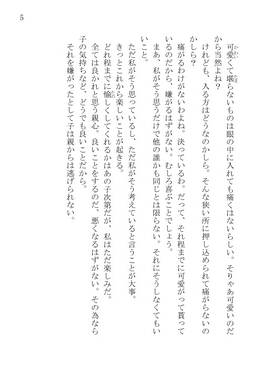 5
可愛くて堪らないものは眼の中に入れても痛くはないらしい。そりゃあ可愛いのだ
から当然よね？
けれども、入る方はどうなのかしら。そんな狭い所に押し込められて痛がらないの
かしら？
痛がるわけがないわよね。決っているわ。だって、それ程までに可愛がって貰って
いるのだから、嫌がるはずがない。むしろ喜ぶことでしょう。
まあ、私がそう思うだけで他の誰かも同じとは限らない。それにそうしなくてもい
いこと。
ただ私がそう思っている。ただ私がそう考えていると言うことが大事。
きっとこれから楽しいことが起きる。
どれ程までに愉しくしてくれるかはあの子次第だが、私はただ楽しみだ。
全ては良かれと思う親心。良いことをするのだ、悪くなるはずがない。その為なら
子の気持ちなど、どうでも良いことだから。
それを嫌がったとして子は親からは逃げられない。